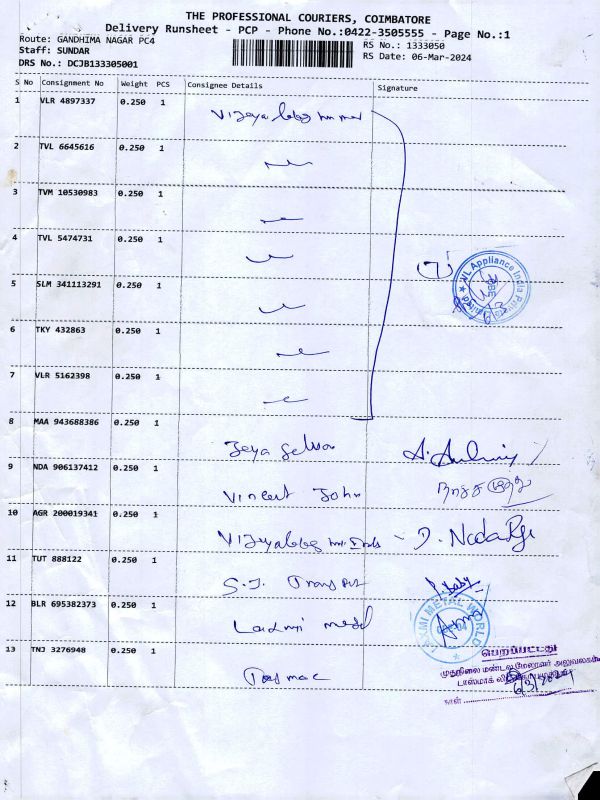 THE PROFESSIONAL COURIERS, COIMBATORE
Delivery Runsheet - PCP - Phone No.:0422-3505555 - Page No.:1
Route: GANDHIMA NAGAR PC4
RS No.: 1333050
Staff: SUNDAR
RS Date: 06-Mar-2024
DRS No.: DCJB133305001
S No Consignment No Weight PCS Consignee Details Signature
1 VLR 4897337 0.250 1
2 TVL 6645616 0.250 1
3 TVM 10530983 0.250 1
4 TVL 5474731 0.250 1
5 SLM 341113291 0.250 1
6 TKY 432863 0.250 1
7 VLR 5162398 0.250 1
WL Appliance India Private Limited
8 MAA 943688386 0.250 1 Jeya Selvan
9 NDA 906137412 0.250 1 Vincent John
10 AGR 200019341 0.250 1
11 TUT 888122 0.250 1 S.J. Transport
12 BLR 695382373 0.250 1 Laxmi metal
LAXMI METAL WORLD
13 TNJ 3276948 0.250 1 Tasmac
பெறப்பட்டது
முதுநிலை மண்டல மேலாளர் அலுவலகம்
நாள்